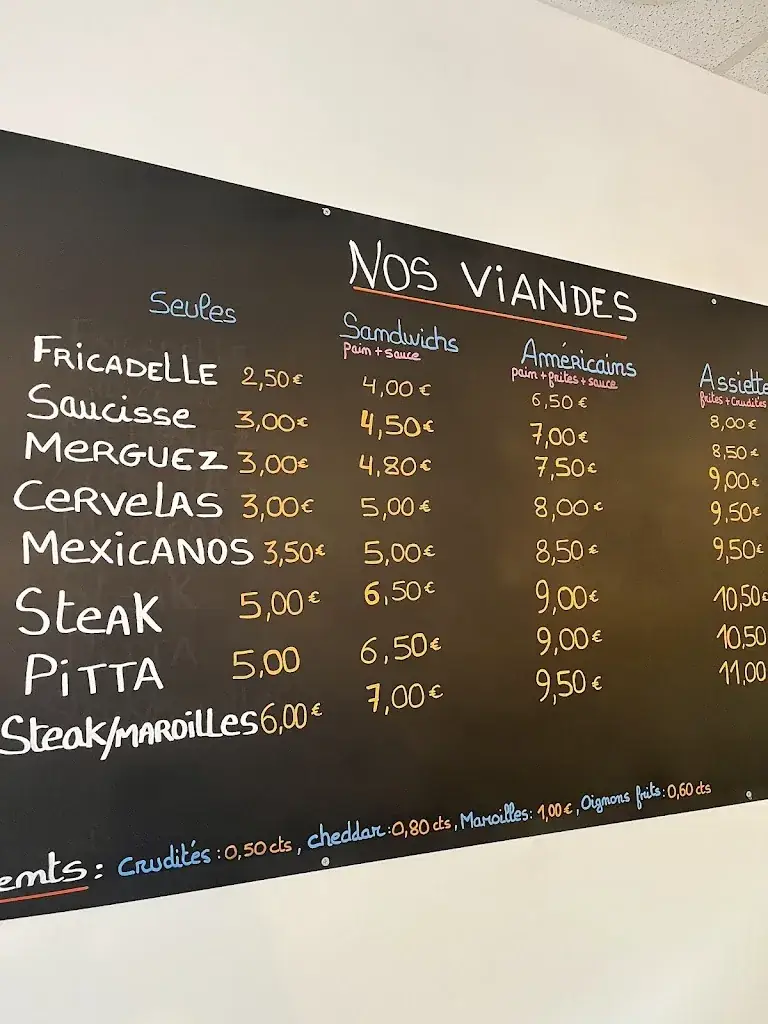 NOS VIANDES
Seules Sandwichs Américains Assiette
pain + sauce pain + frites + sauce frites + crudités
FRICADELLE 2,50€ 4,00€ 6,50€ 8,00€
Saucisse 3,00€ 4,50€ 7,00€ 8,50€
MERGUEZ 3,00€ 4,80€ 7,50€ 9,00€
CERVELAS 3,00€ 5,00€ 8,00€ 9,50€
MexicANOS 3,50€ 5,00€ 8,50€ 9,50€
SteAK 5,00€ 6,50€ 9,00€ 10,50€
PiTTA 5,00 6,50€ 9,00€ 10,50
Steak/MAROiLLES 6,00€ 7,00€ 9,50€ 11,00
emts : Crudités : 0,50 cts, cheddar : 0,80 cts, Maroilles : 1,00€, Oignons frits : 0,60 cts